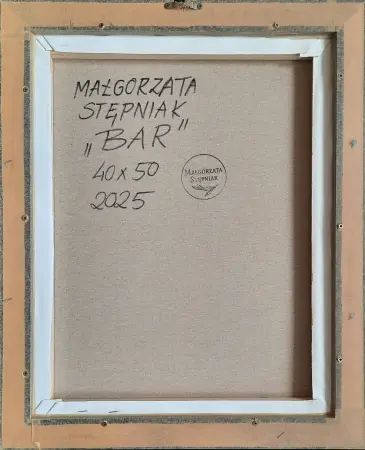 MAŁGORZATA
STĘPNIAK
„BAR"
40 x 50
2025
MAŁGORZATA
STĘPNIAK